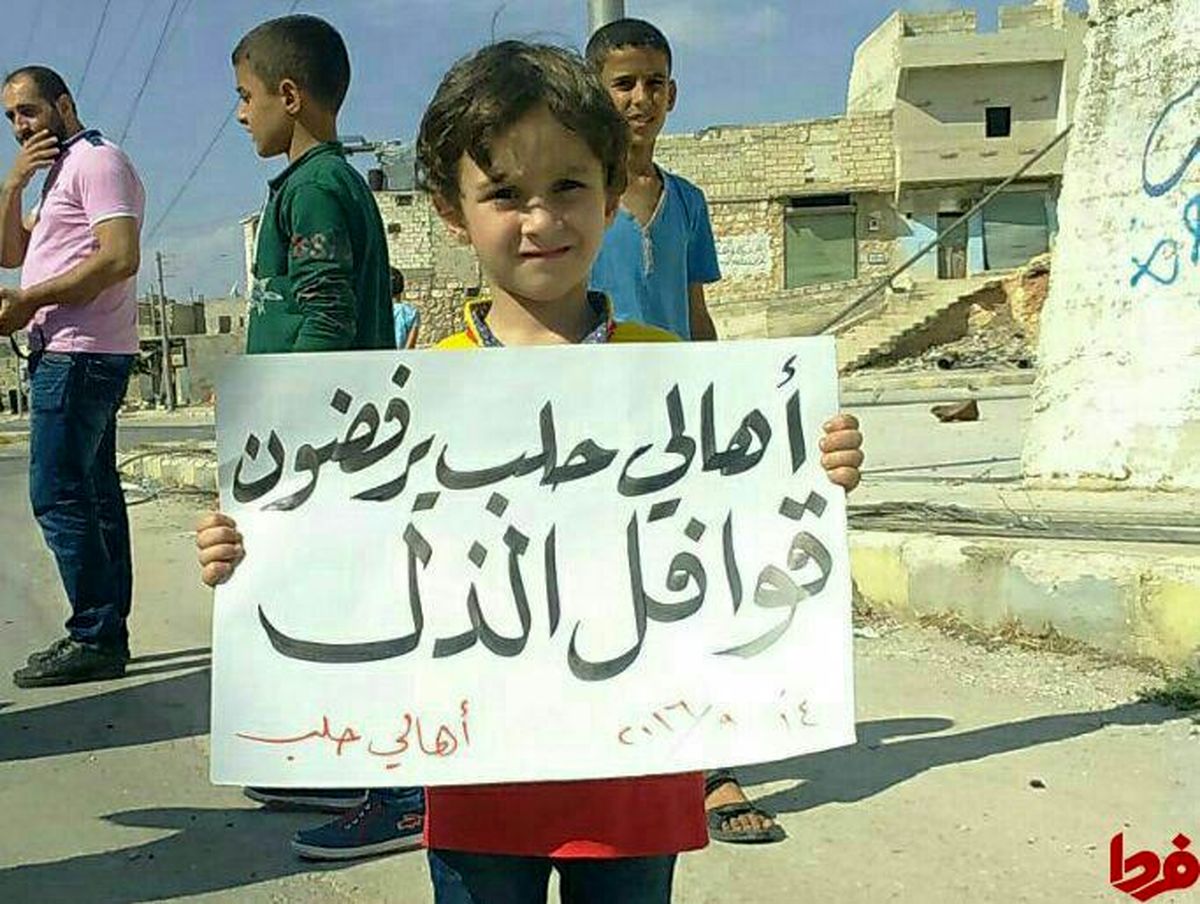 أهالي حلب يرفضون
قوافل الذل
١٤ ٢٠١٦/٩
أهالي حلب
فردا